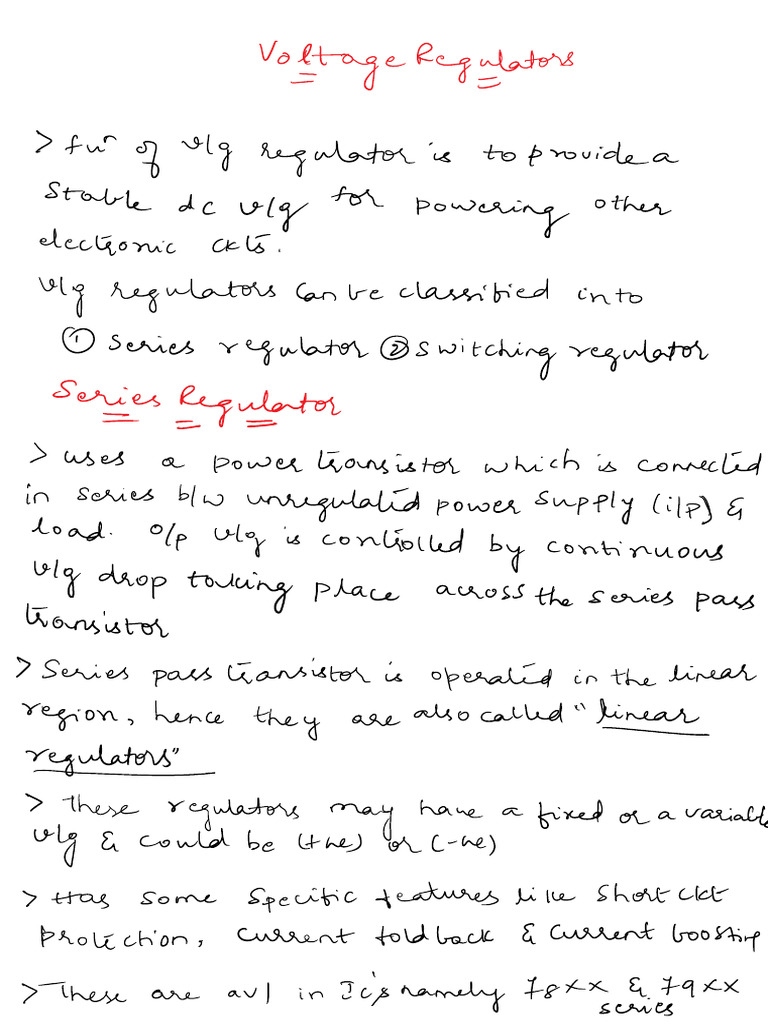 Voltage Regulators
> fun of v/g regulator is to provide a
stable dc v/g for powering other
electronic ckts.
v/g regulators can be classified into
① series regulator ② switching regulator
Series Regulator
> uses a power transistor which is connected
in series b/w unregulated power supply (i/p) &
load. o/p v/g is controlled by continuous
v/g drop taking place across the series pass
transistor
> Series pass transistor is operated in the linear
region, hence they are also called "linear
regulators"
> These regulators may have a fixed or a variable
v/g & could be (+ve) or (-ve)
> Has some specific features like short ckt
protection, current foldback & current boosting
> These are avl in Ic's namely 78XX & 79XX
series